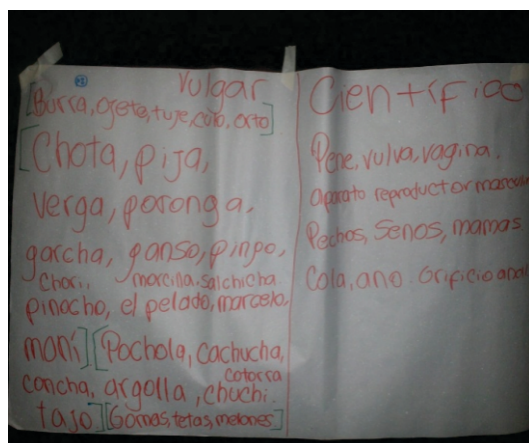 21
vulgar
[Burra, ojete, tuje, culo, orto]
[Chota, pija,
verga, poronga,
garcha, ganso, pingo,
Chori, morcilla, salchicha.
pinocho, el pelado, marcelo,
moni] [Pochola, cachucha,
cotorra
concha, argolla, chuchi.
tajo] [Gomas, tetas, melones]
Científico
Pene, vulva, vagina.
aparato reproductor masculi
Pechos, Senos, mamas
Cola, ano. Orificio anal